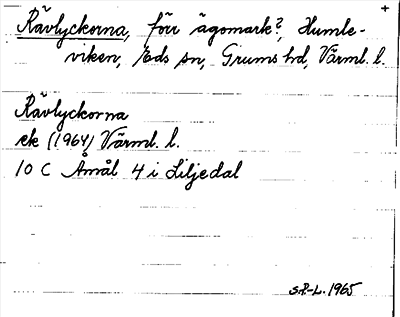 Rävlyckorna, förr ägomark?, Humle-
viken, Eds sn, Grums hd, Värml. l.
Rävlyckorna
ek (1964) Värml. l.
10 C Åmål 4 i Liljedal
S.P-L. 1965